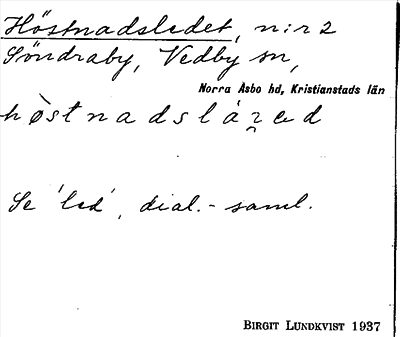 Höstnadsledet, n:r 2
Söndraby, Vedby sn,
Norra Åsbo hd, Kristianstads län
Se 'led', dial.- saml.
BIRGIT LUNDKVIST 1937